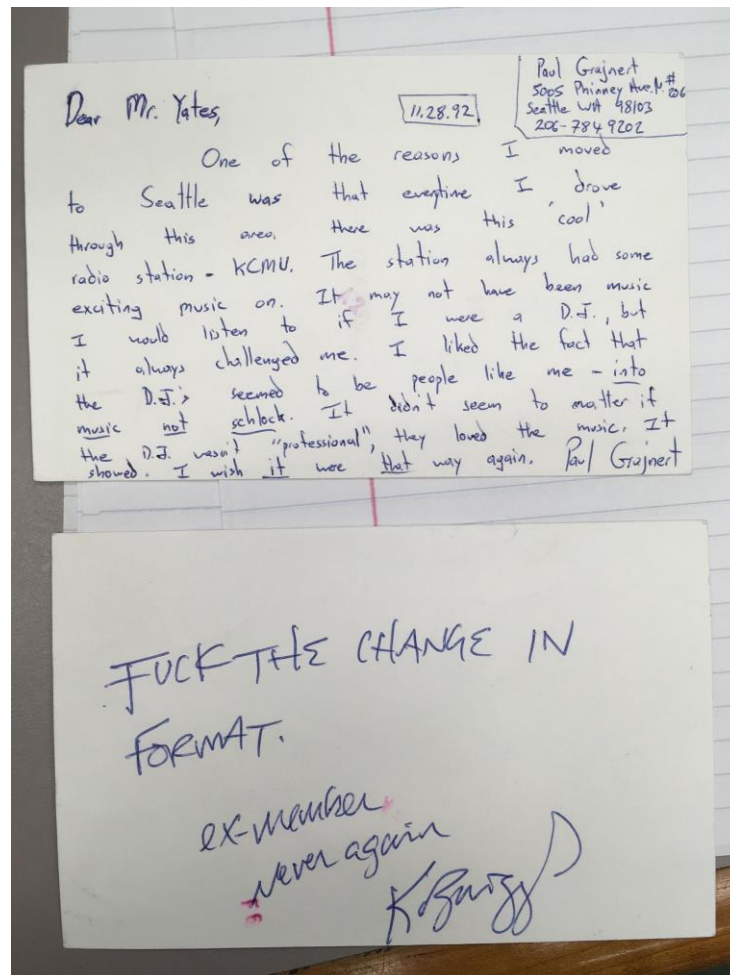 Paul Grajnert
5005 Phinney Ave. N. #206
Seattle WA 98103
206-784 9202
11.28.92
Dear Mr. Yates,
One of the reasons I moved
to Seattle was that everytime I drove
through this area, there was this 'cool'
radio station - KCMU. The station always had some
exciting music on. It may not have been music
I would listen to if I were a D.J., but
it always challenged me. I liked the fact that
the D.J.'s seemed to be people like me - into
music not schlock. It didn't seem to matter if
the D.J. wasn't "professional", they loved the music. It
showed. I wish it were that way again. Paul Grajnert
FUCK THE CHANGE IN
FORMAT.
ex-member
never again